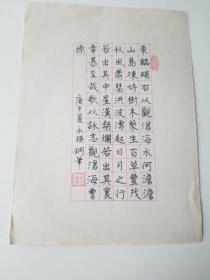 東臨碣石以觀滄海水何澹澹
山島竦峙樹木叢生百草豐茂
秋風蕭瑟洪波湧起日月之行
若出其中星漢粲爛若出其裏
幸甚至哉歌以詠志觀滄海曹
操
庚午夏永鋼筆